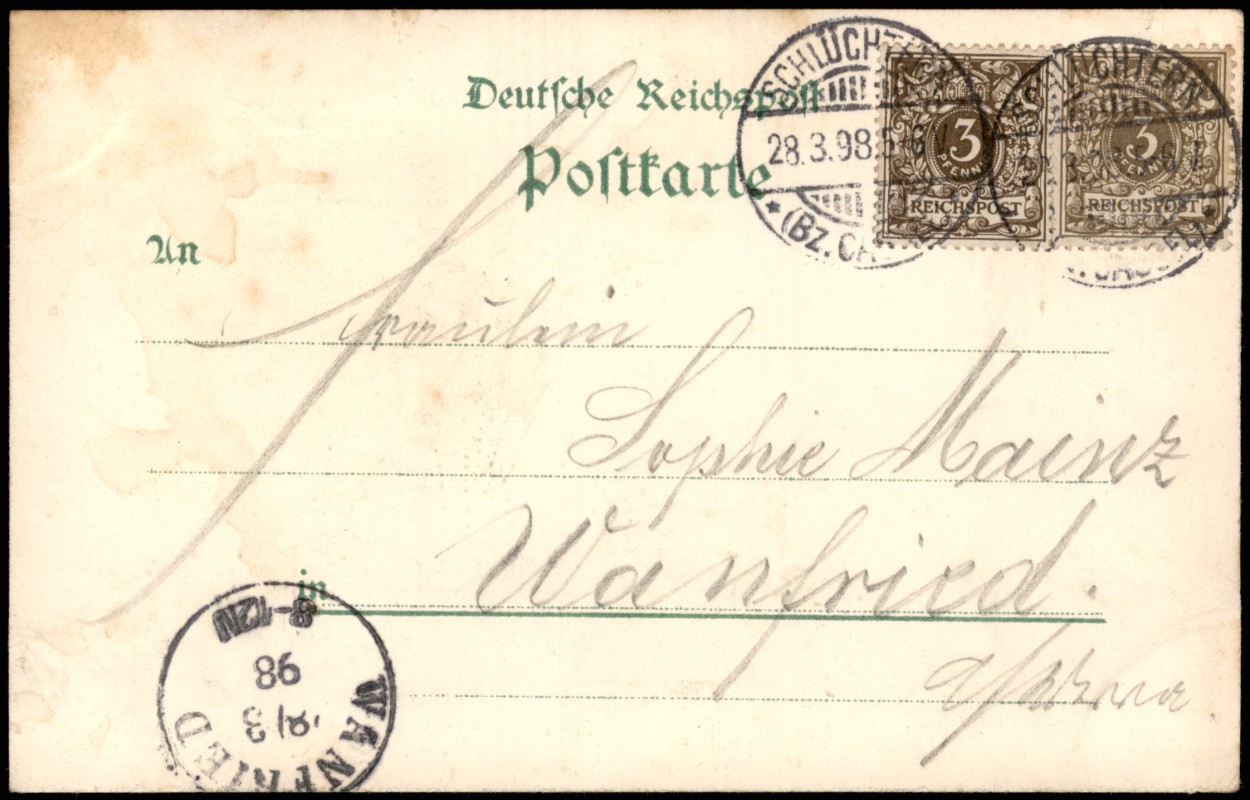 Deutsche Reichspost
Postkarte
SCHLÜCHTERN
28.3.98
(BZ. CASSEL)
3
PFENNIG
REICHSPOST
3
PFENNIG
REICHSPOST
An
Fräulein
Sophie Mainz
in Wanfried.
a/Werra
WANFRIED
3
98
8-12N